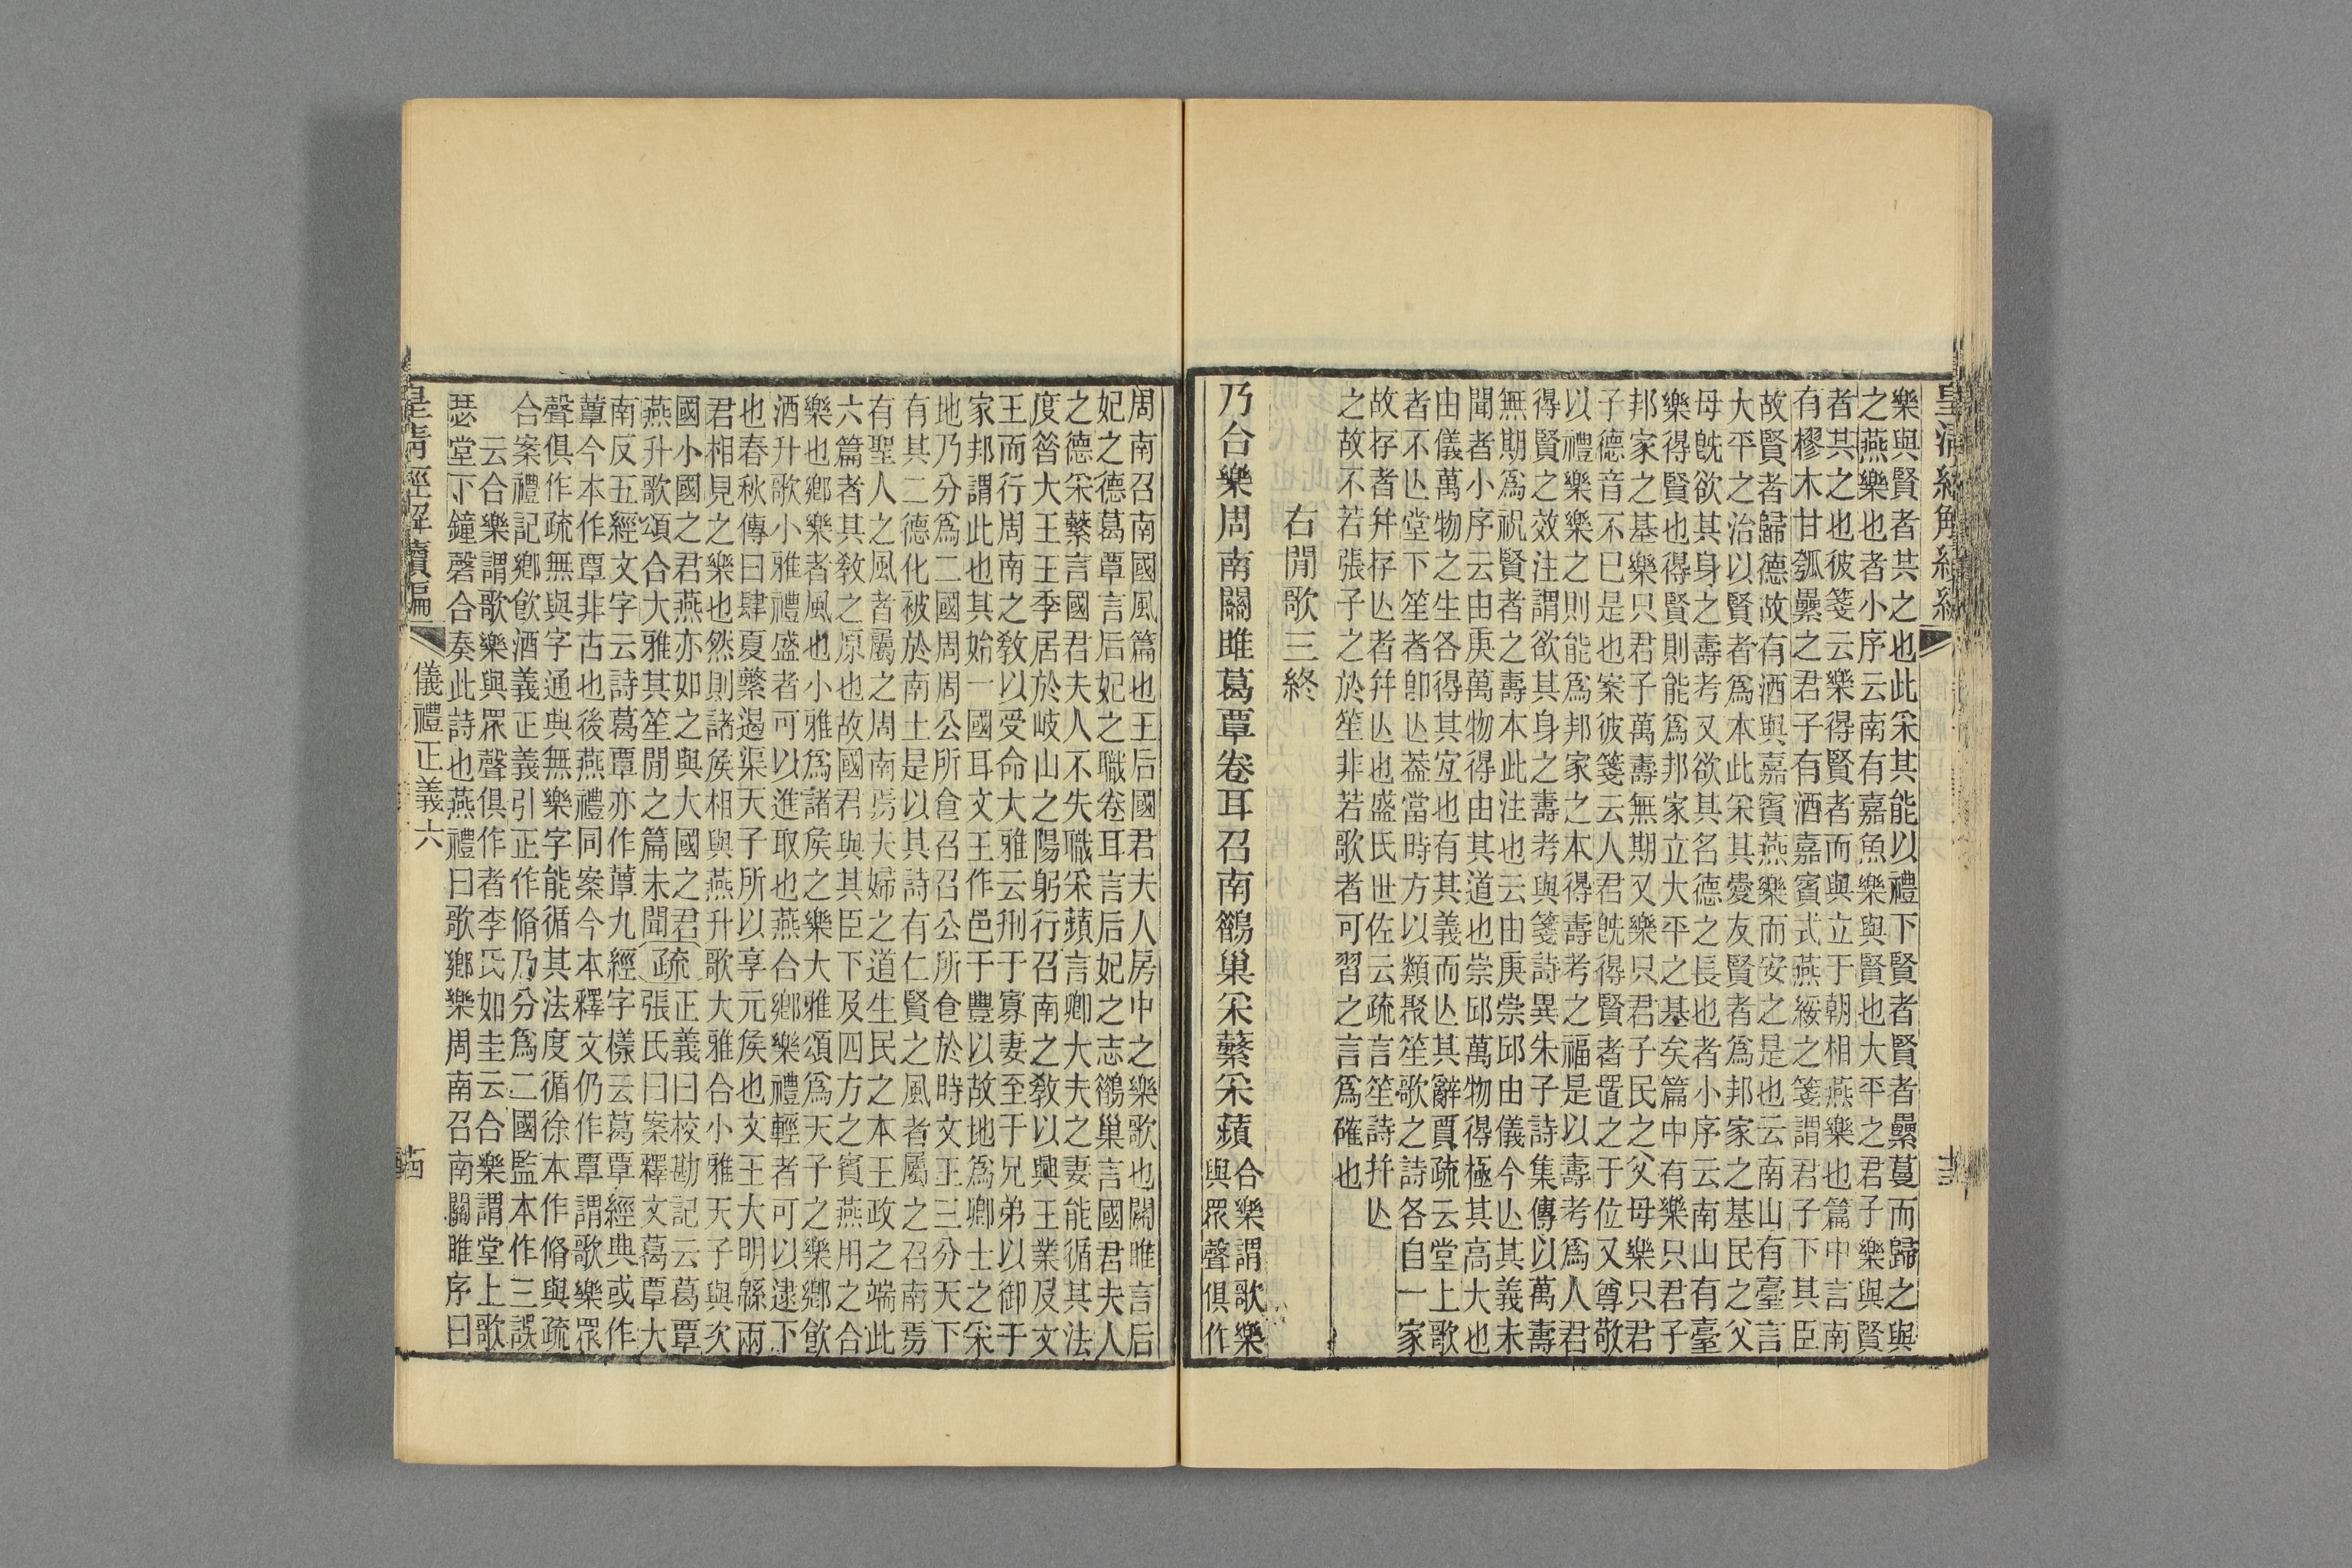 皇清經解續編
十三
樂與賢者共之也此采其能以禮下賢者賢者纍蔓而歸之與
之燕樂也者小序云南有嘉魚樂與賢也大平之君子樂與賢
者共之也彼箋云樂得賢者而與立于朝相燕樂也篇中言南
有樛木甘瓠纍之君子有酒嘉賓式燕綏之箋謂君子下其臣
故賢者歸德故有酒與嘉賓燕樂而安之是也云南山有臺言
大平之治以賢者爲本此采其愛友賢者爲邦家之基民之父
母旣欲其身之壽考又欲其名德之長也者小序云南山有臺
樂得賢也得賢則能爲邦家立大平之基矣篇中有樂只君子
邦家之基樂只君子萬壽無期又樂只君子民之父母樂只君
子德音不已是也案彼箋云人君旣得賢者置之于位又尊敬
以禮樂樂之則能爲邦家之本得壽考之福是以壽考爲人君
得賢之效注謂欲其身之壽考與箋詩異朱子詩集傳以萬壽
無期爲祝賢者之壽本此注也云由庚崇邱由儀今亾其義未
聞者小序云由庚萬物得由其道也崇邱萬物得極其高大也
由儀萬物之生各得其宜也有其義而亾其辭賈疏云堂上歌
者不亾堂下笙者卽亾葢當時方以類聚笙歌之詩各自一家
故存者幷存亾者幷亾也盛氏世佐云疏言笙詩幷亾
之故不若張子之於笙非若歌者可習之言爲確也
右閒歌三終
乃合樂周南關雎葛覃卷耳召南鵲巢采蘩采蘋
合樂謂歌樂
與眾聲俱作
周南召南國風篇也王后國君夫人房中之樂歌也關雎言后
妃之德葛覃言后妃之職卷耳言后妃之志鵲巢言國君夫人
之德采蘩言國君夫人不失職采蘋言卿大夫之妻能循其法
度昝大王王季居於岐山之陽躬行召南之敎以興王業及文
王而行周南之敎以受命大雅云刑于寡妻至于兄弟以御于
家邦謂此也其始一國耳文王作邑于豐以故地爲卿士之采
地乃分爲二國周周公所食召召公所食於時文王三分天下
有其二德化被於南土是以其詩有仁賢之風者屬之召南焉
有聖人之風者屬之周南焉夫婦之道生民之本王政之端此
六篇者其敎之原也故國君與其臣下及四方之賓燕用之合
樂也鄉樂者風也小雅爲諸矦之樂大雅頌爲天子之樂鄉飮
酒升歌小雅禮盛者可以進取也燕合鄉樂禮輕者可以逮下
也春秋傳曰肆夏繁遏渠天子所以享元矦也文王大明緜兩
君相見之樂也然則諸矦相與燕升歌大雅合小雅天子與次
國小國之君燕亦如之與大國之君
燕升歌頌合大雅其笙閒之篇未聞
疏
正義曰校勘記云葛覃
張氏曰案釋文葛覃大
南反五經文字云詩葛覃亦作蕈九經字樣云葛覃經典或作
蕈今本作覃非古也後燕禮同案今本釋文仍作覃謂歌樂眾
聲俱作疏無與字通典無樂字能循其法度循徐本作脩與疏
合案禮記鄉飮酒義正義引正作脩乃分爲二國監本作三誤
云合樂謂歌樂與眾聲俱作者李氏如圭云合樂謂堂上歌
瑟堂下鐘磬合奏此詩也燕禮曰歌鄉樂周南召南關雎序曰
皇清經解續編
儀禮正義六